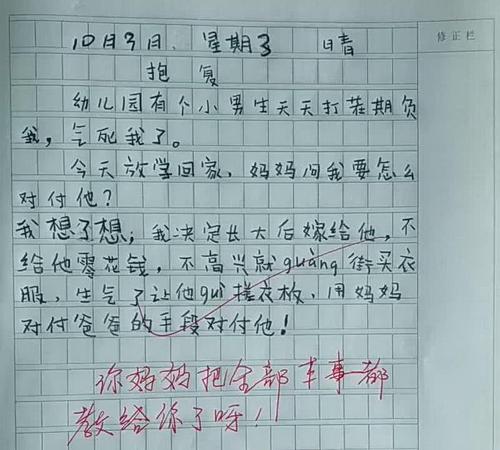 修正栏
10月3日. 星期3 晴
抱复
幼儿园有个小男生天天打茬期负
我，气死我了。
今天放学回家，妈妈问我要怎么
对付他？
我想了想，我决定长大后嫁给他，不
给他零花钱，不高兴就guàng街买衣
服，生气了让他guì搓衣板，用妈妈
对付爸爸的手段对付他！
你妈妈把全部本事都
教给你了呀！